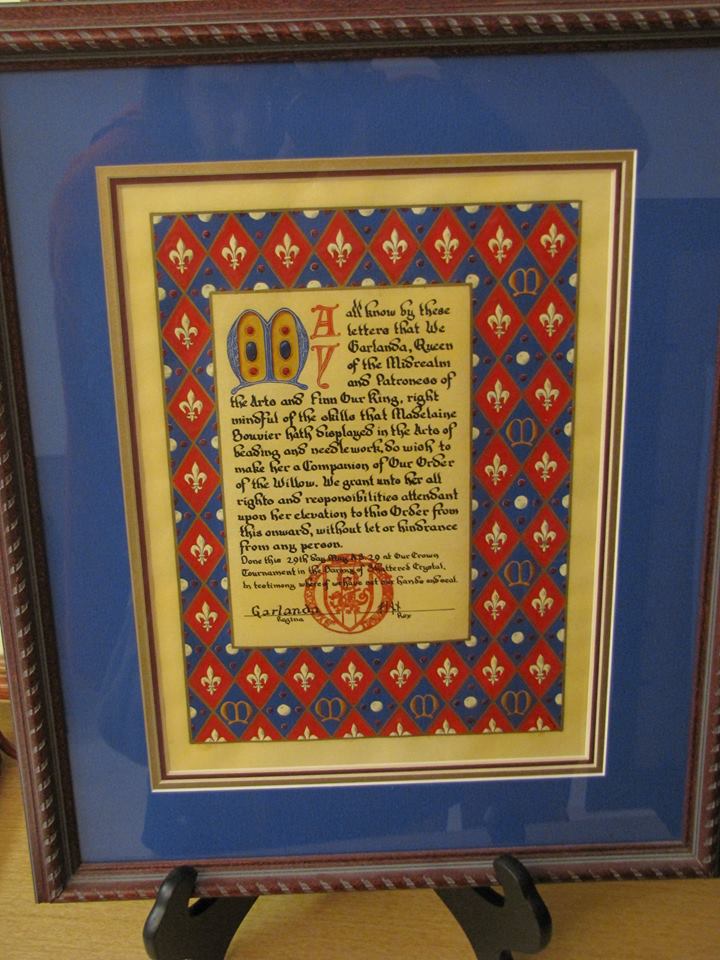 MAY all know by these
letters that We
Garlanda, Queen
of the Midrealm
and Patroness of
the Arts and Finn Our King, right
mindful of the skills that Madelaine
Bouvier hath displayed in the Arts of
beading and needlework, do wish to
make her a Companion of Our Order
of the Willow. We grant unto her all
rights and responsibilities attendant
upon her elevation to this Order from
this onward, without let or hindrance
from any person.
Done this 29th day May A.S. 29 at Our Crown
Tournament in the Barony of Shattered Crystal.
In testimony where of we have set our hands and seal
Garlanda
Regina Rex
M
M
M
M
M
M
M